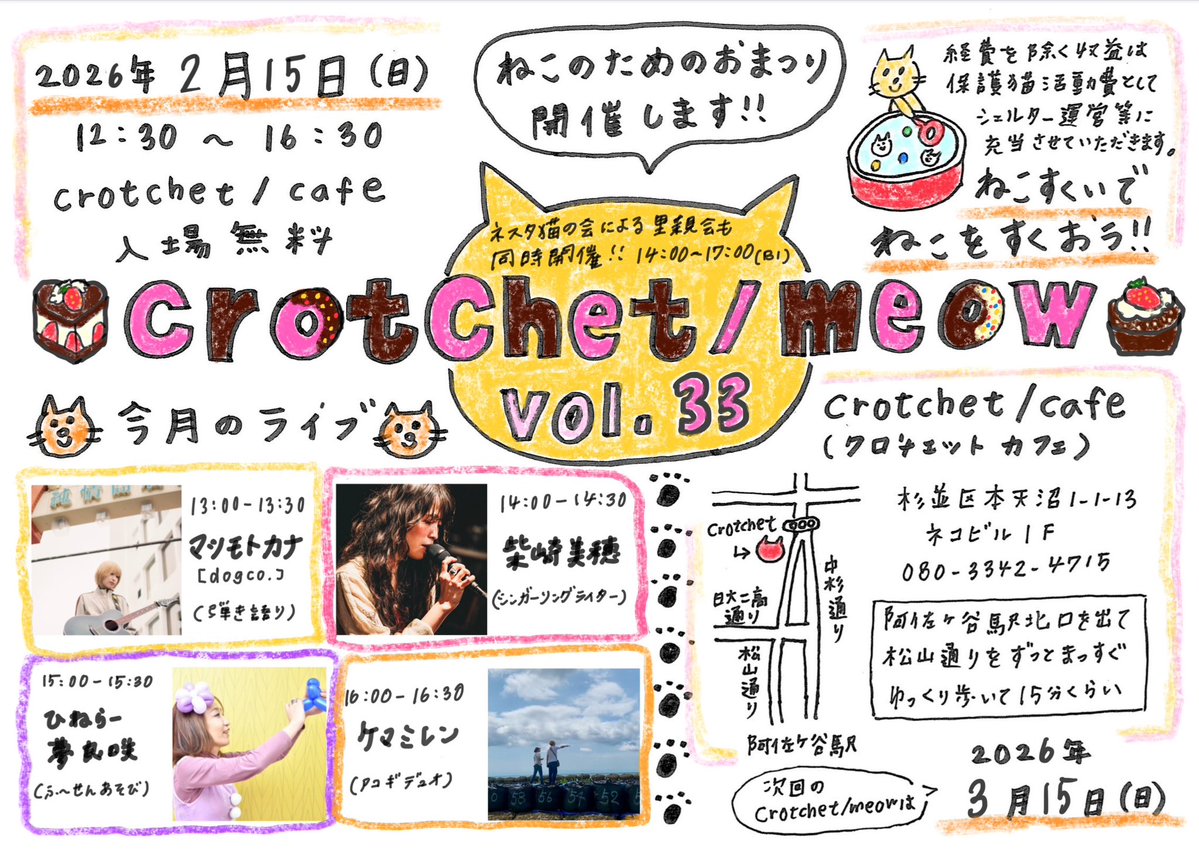 2026年 2月15日(日)
12:30 〜 16:30
crotchet/cafe
入場無料
ねこのためのおまつり
開催します!!
経費を除く収益は
保護猫活動費として
シェルター運営等に
充当させていただきます。
ねこすくいで
ねこをすくおう!!
ネスタ猫の会による里親会も
同時開催!! 14:00~17:00(B1)
crotchet/meow
vol. 33
今月のライブ
13:00-13:30
マツモトカナ
[dogco.]
(弾き語り)
14:00-14:30
柴崎美穂
(シンガーソングライター)
15:00-15:30
ひねらー
夢良咲
(ふ〜せんあそび)
16:00-16:30
ケマミレン
(アコギデュオ)
53 56 57 52
crotchet/cafe
(クロチェット カフェ)
杉並区本天沼1-1-13
ネコビル1F
080-3342-4715
Crotchet
日大二高
通り
中杉通り
松山通り
阿佐ヶ谷駅
阿佐ヶ谷駅北口を出て
松山通りをずっとまっすぐ
ゆっくり歩いて15分くらい
次回の
Crotchet/meowは
2026年
3月15日(日)